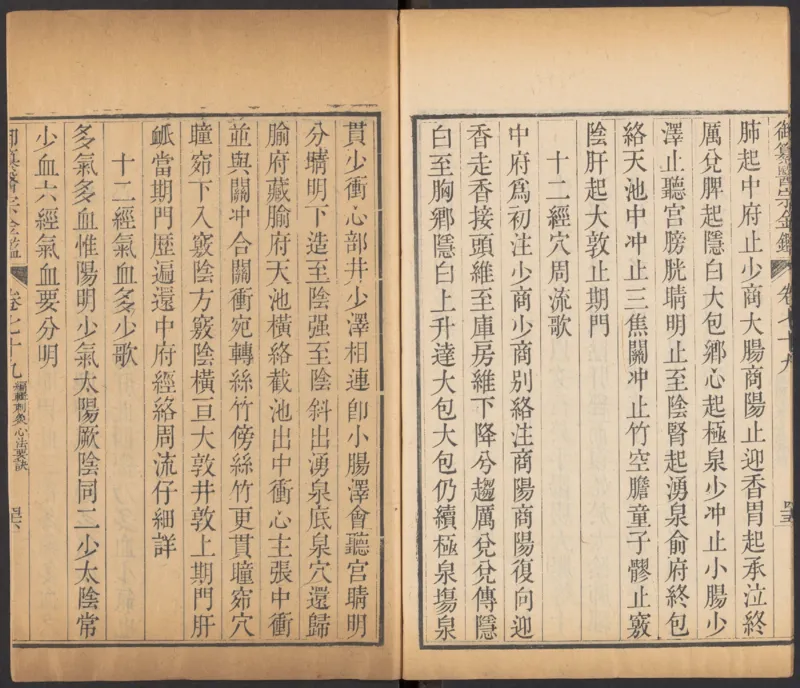 御纂醫宗金鑑
卷七十九
肺起中府止少商大腸商陽止迎香胃起承泣終
厲兌脾起隱白大包鄉心起極泉少冲止小腸少
澤止聽宮膀胱睛明止至陰腎起湧泉俞府終包
絡天池中冲止三焦關冲止竹空膽童子髎止竅
陰肝起大敦止期門
十二經穴周流歌
中府爲初注少商少商別絡注商陽商陽復向迎
香走香接頭維至庫房維下降兮趨厲兌兌傳隱
白至胸鄉隱白上升達大包大包仍續極泉塲泉
貫少衝心部井少澤相連卽小腸澤會聽宮睛明
分睛明下造至陰强至陰斜出湧泉底泉穴還歸
腧府藏腧府天池橫絡截池出中衝心主張中衝
並與關冲合關衝宛轉絲竹傍絲竹更貫瞳窌穴
瞳窌下入竅陰方竅陰橫亘大敦井敦上期門肝
脈當期門歷遍還中府經絡周流仔細詳
十二經氣血多少歌
多氣多血惟陽明少氣太陽厥陰同二少太陰常
少血六經氣血要分明
御纂醫宗金鑑
卷七十九
編輯刺灸心法要訣